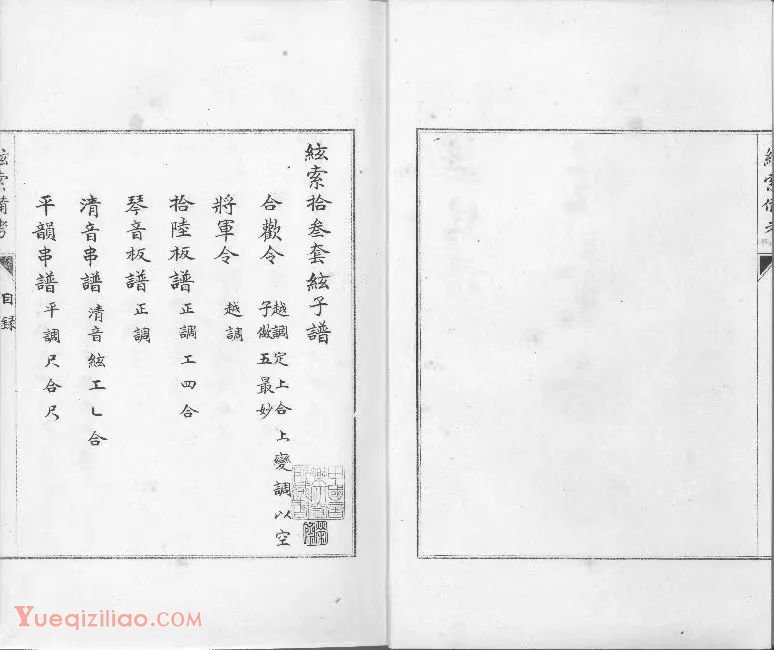 絃索拾叁套絃子譜
合歡令 越調定上合上變調以空
子做五最妙
將軍令 越調
拾陸板譜 正調工四合
琴音板譜 正調
清音串譜 清音絃工乚合
平韻串譜 平調尺合尺
絃索備考
目錄
YUEQIZILIAO.COM